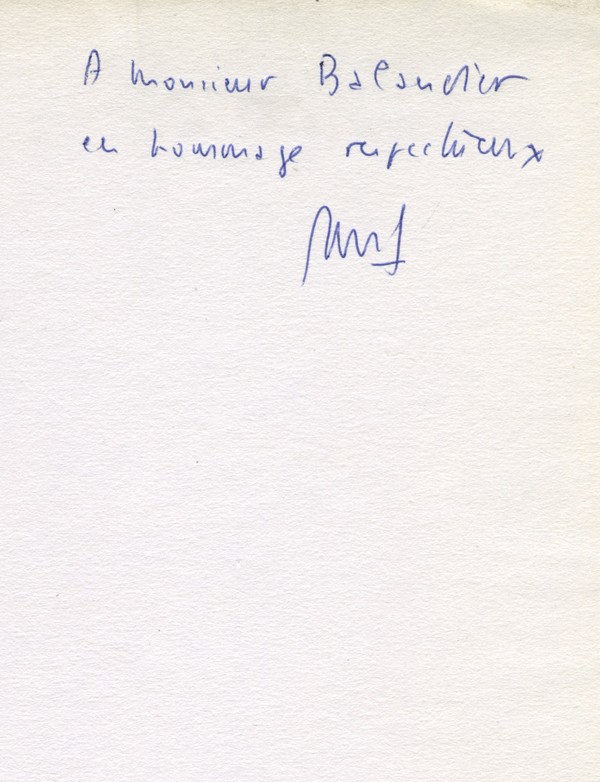 A Monsieur Balandier
en hommage respectueux